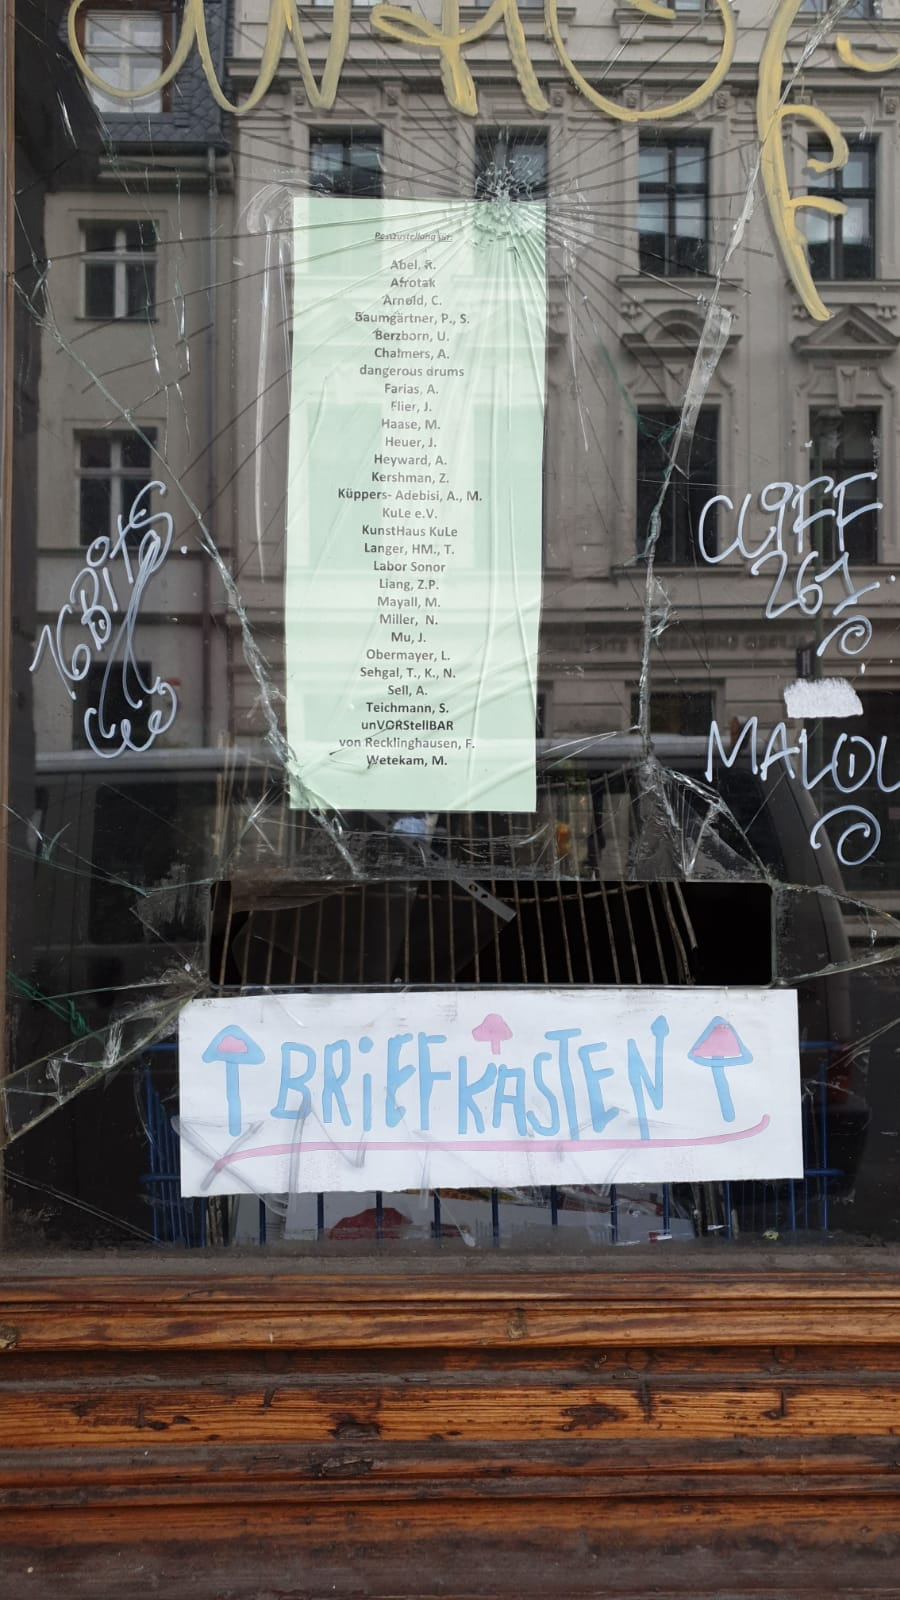 Postzustellung für:
Abel, R.
Afrotak
Arnold, C.
Baumgärtner, P., S.
Berzborn, U.
Chalmers, A.
dangerous drums
Farias, A.
Flier, J.
Haase, M.
Heuer, J.
Heyward, A.
Kershman, Z.
Küppers- Adebisi, A., M.
KuLe e.V.
KunstHaus KuLe
Langer, HM., T.
Labor Sonor
Liang, Z.P.
Mayall, M.
Miller, N.
Mu, J.
Obermayer, L.
Sehgal, T., K., N.
Sell, A.
Teichmann, S.
unVORStellBAR
von Recklinghausen, F.
Wetekam, M.
16BiTS
CLIFF
261.
MALOU
BRiEFKASTEN